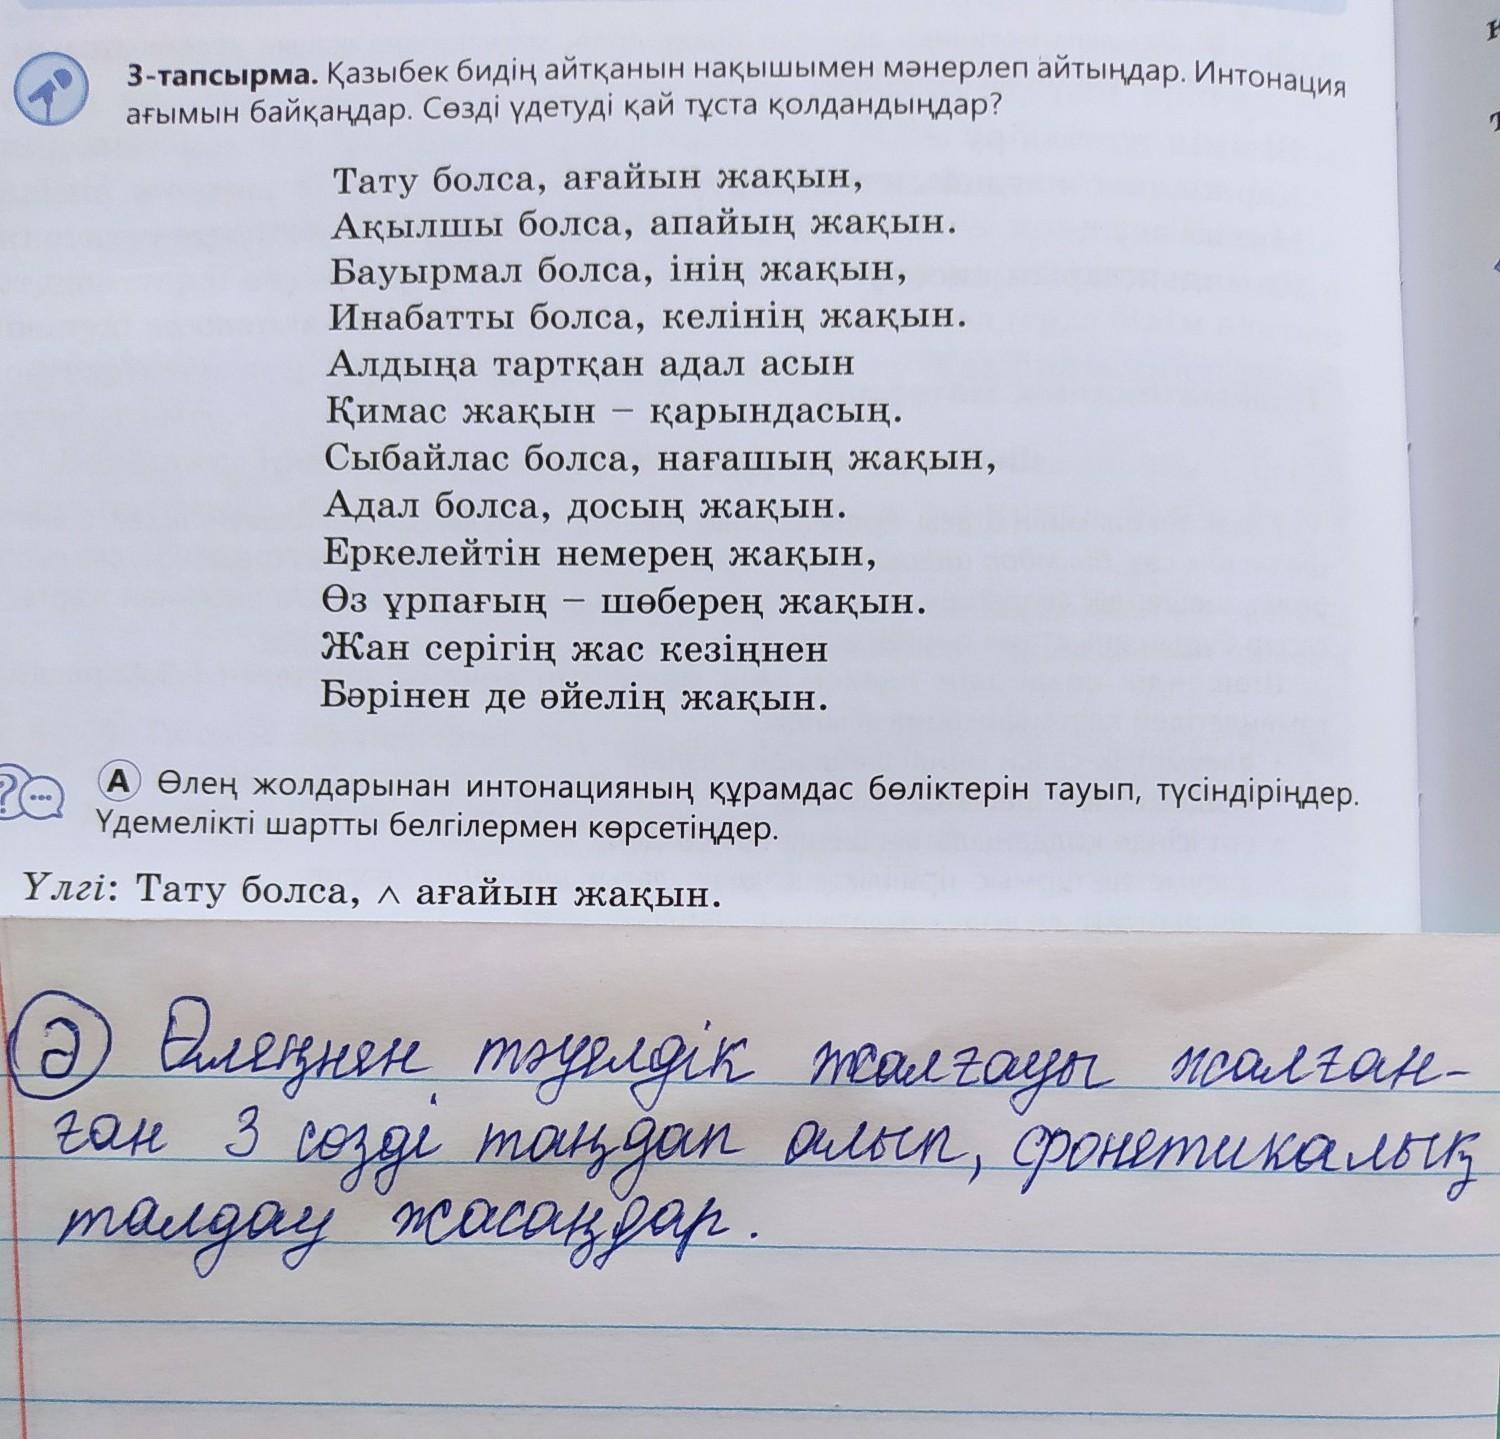 3-тапсырма. Қазыбек бидің айтқанын нақышымен мәнерлеп айтыңдар. Интонация
ағымын байқаңдар. Сөзді үдетуді қай тұста қолдандыңдар?
Тату болса, ағайын жақын,
Ақылшы болса, апайың жақын.
Бауырмал болса, інің жақын,
Инабатты болса, келінің жақын.
Алдыңа тартқан адал асын
Қимас жақын – қарындасың.
Сыбайлас болса, нағашың жақын,
Адал болса, досың жақын.
Еркелейтін немерең жақын,
Өз ұрпағың – шөберең жақын.
Жан серігің жас кезіңнен
Бәрінен де әйелің жақын.
А Өлең жолдарынан интонацияның құрамдас бөліктерін тауып, түсіндіріңдер.
Үдемелікті шартты белгілермен көрсетіңдер.
Үлгі: Тату болса, ∧ ағайын жақын.
Ә Өлеңнен тәуелдік жалғауы жалған-
ған 3 сөзді таңдап алып, фонетикалық
талдау жасаңдар.